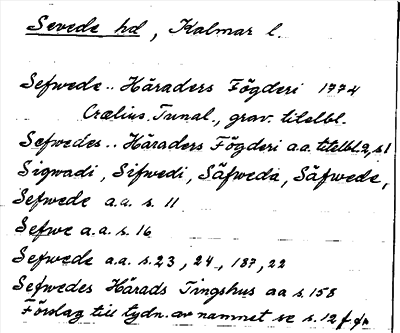 Sevede hd, Kalmar l.
Sefwede.. Häraders Fögderi 1774
Crælius. Tunal., grav. titelbl.
Sefwedes.. Häraders Fögderi a.a. titelbl. 2, s. 1
Sigwadi, Sifwedi, Säfweda, Säfwede,
Sefwede a.a. s. 11
Sefwe a.a. s. 16
Sefwede a.a. s. 23, 24, 187, 22
Sefwedes Härads Tingshus aa s. 158
Förslag till tydn. av namnet se s. 12 f.